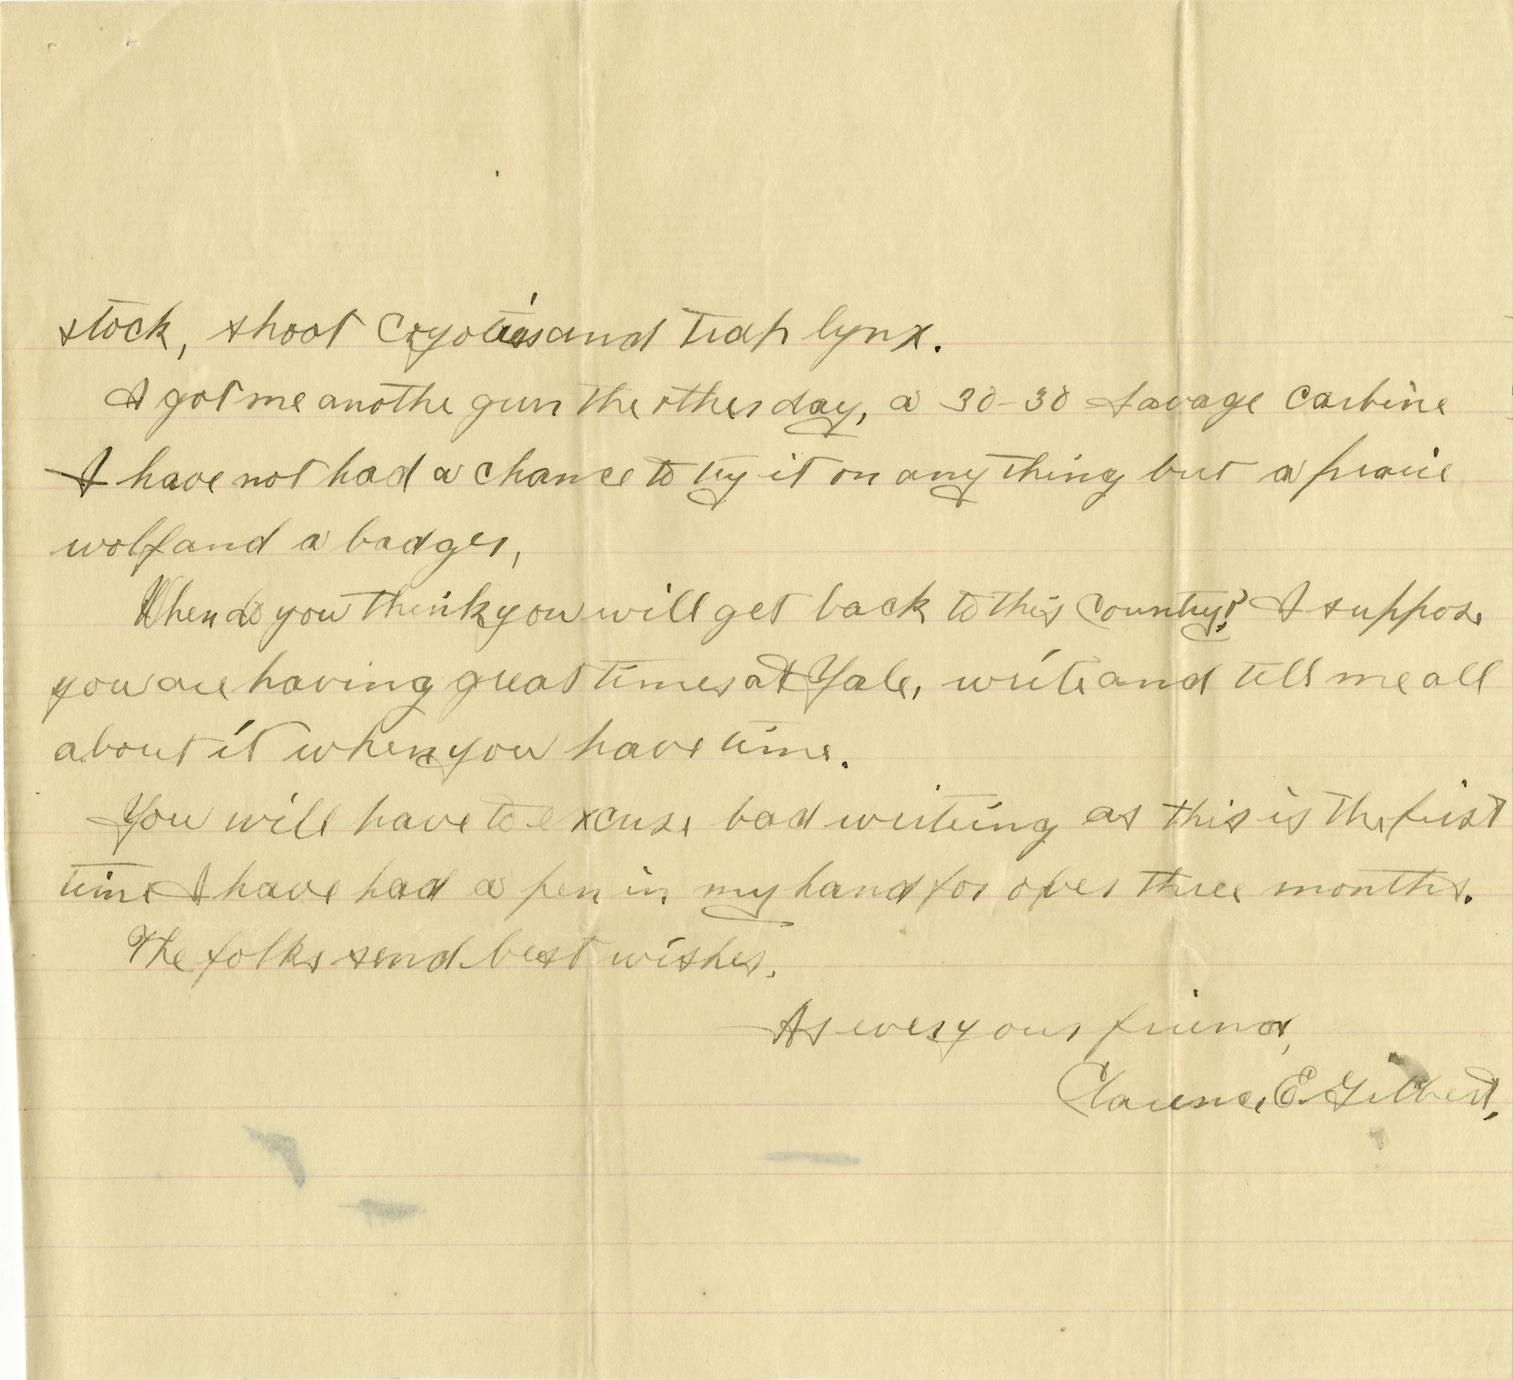 stock, shoot Coyoties and trap lynx.
I got me anothe gun the other day, a 30-30 Savage Carbine
I have not had a chance to try it on any thing but a praiie
wolf and a badger,
When do you think you will get back to this Country? I suppose
you are having great times at Yale, write and tell me all
about it when you have time.
You will have to excuse bad writeing as this is the first
time I have had a pen in my hand for over three months.
The folks send best wishes.
As ever your friend,
Clarence E. Gilbert,